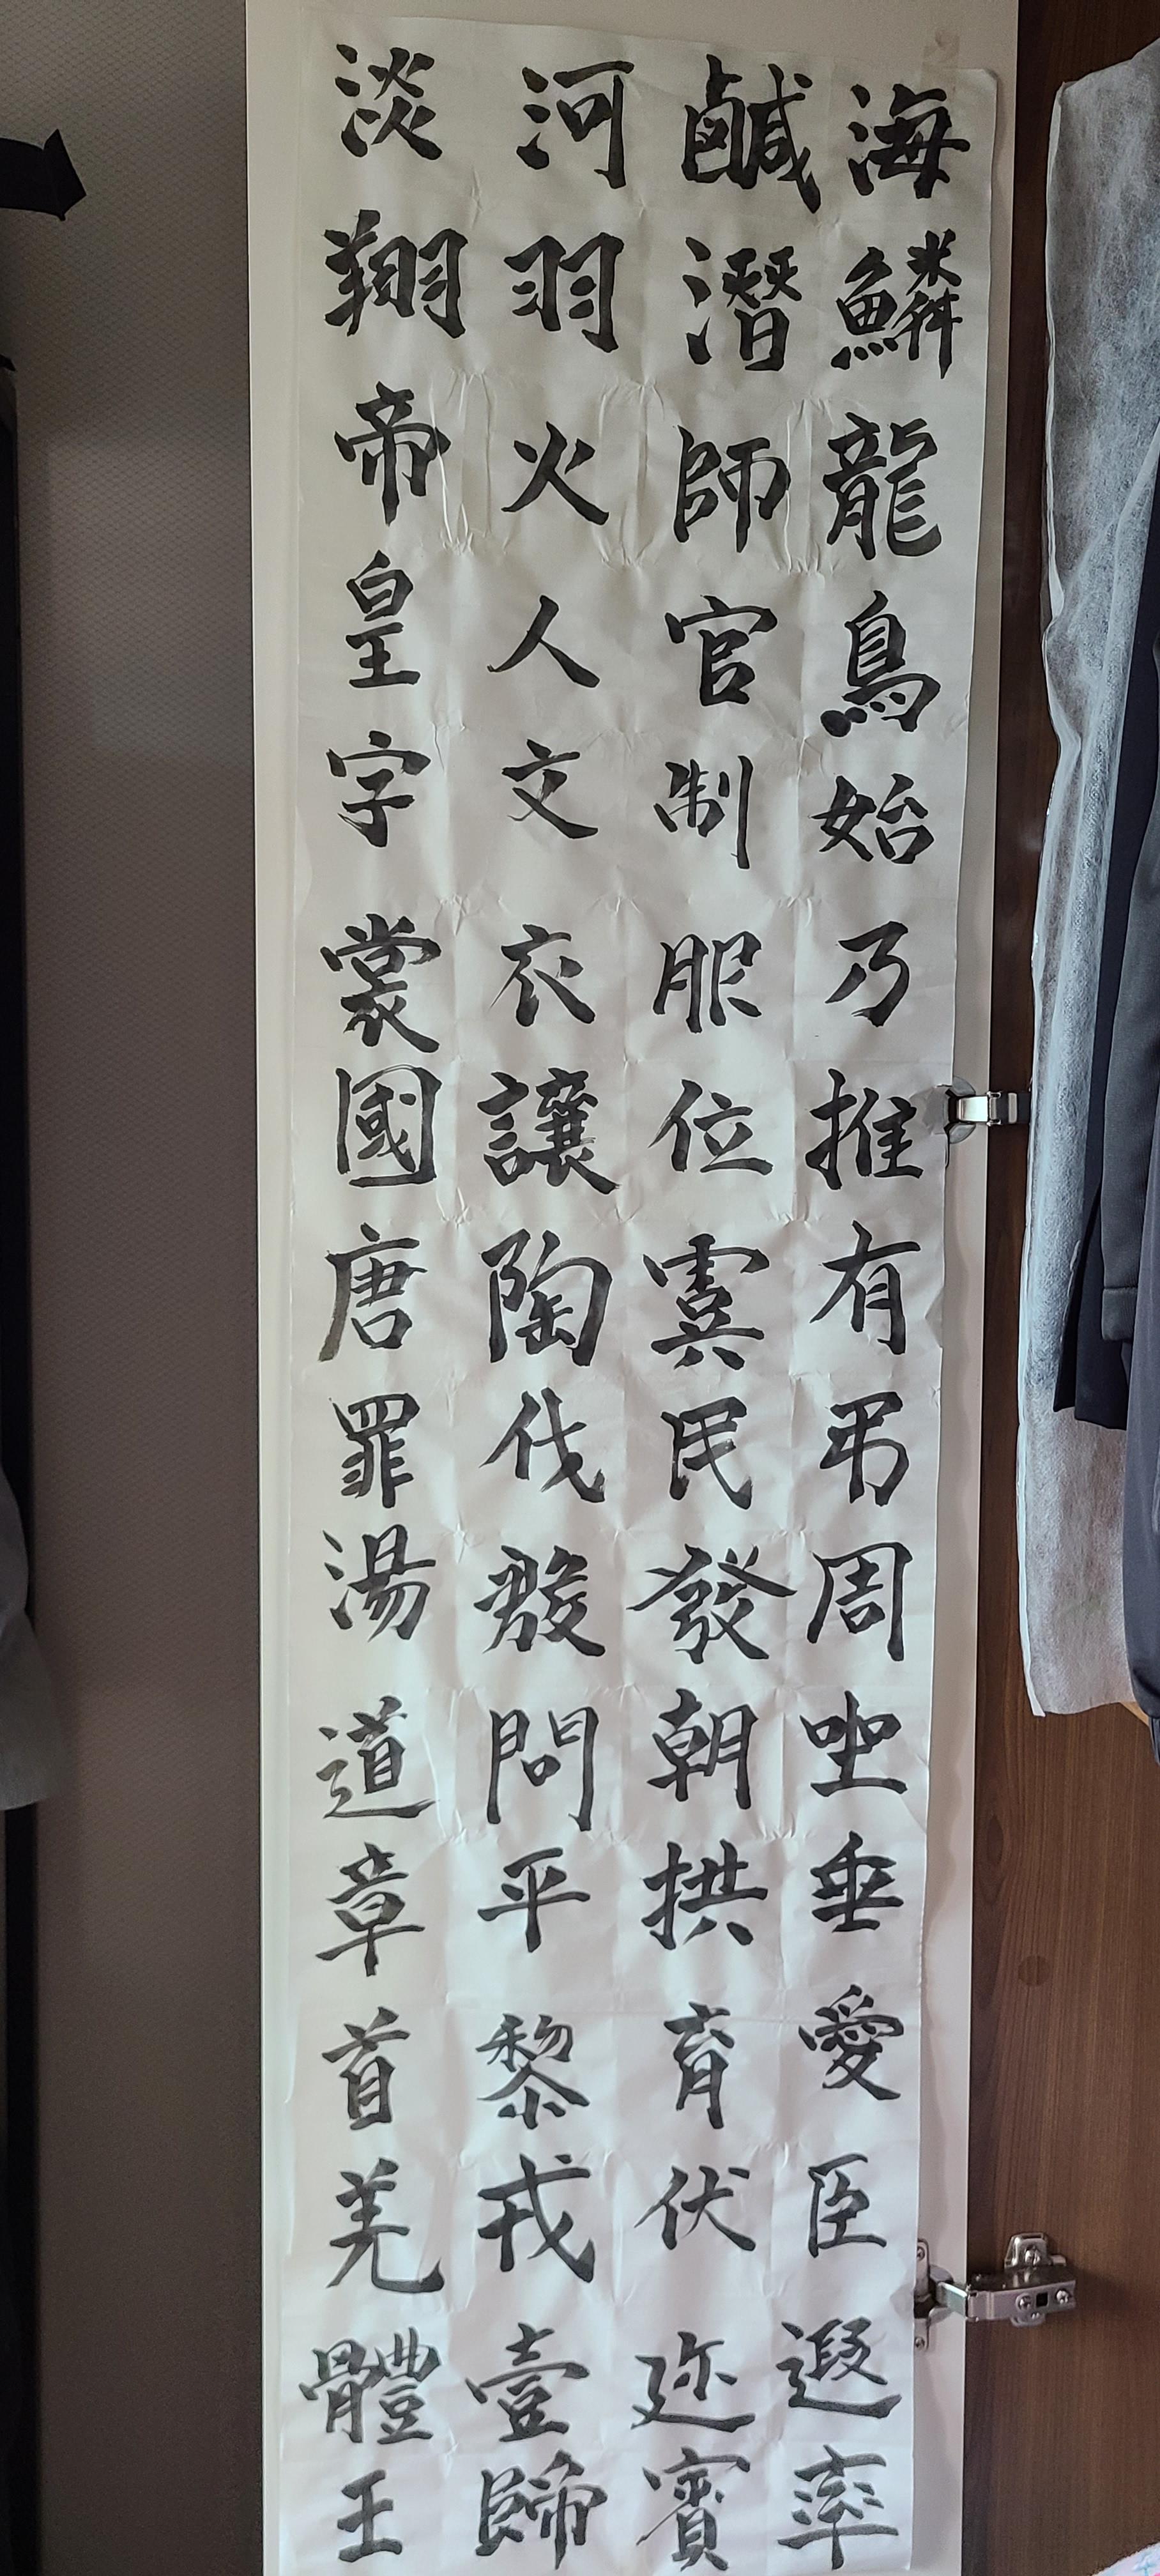 海鹹河淡
鱗潛羽翔
龍師火帝
鳥官人皇
始制文字
乃服衣裳
推位讓國
有虞陶唐
弔民伐罪
周發殷湯
坐朝問道
垂拱平章
愛育黎首
臣伏戎羌
遐迩壹體
率賓歸王